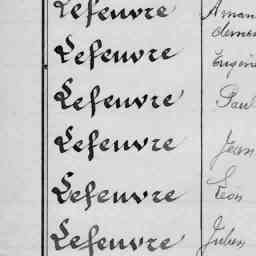 Lefeuvre Aman
clemen
Lefeuvre Eugéni
Lefeuvre Paul
Lefeuvre Jean
Lefeuvre Léon
Lefeuvre Julien